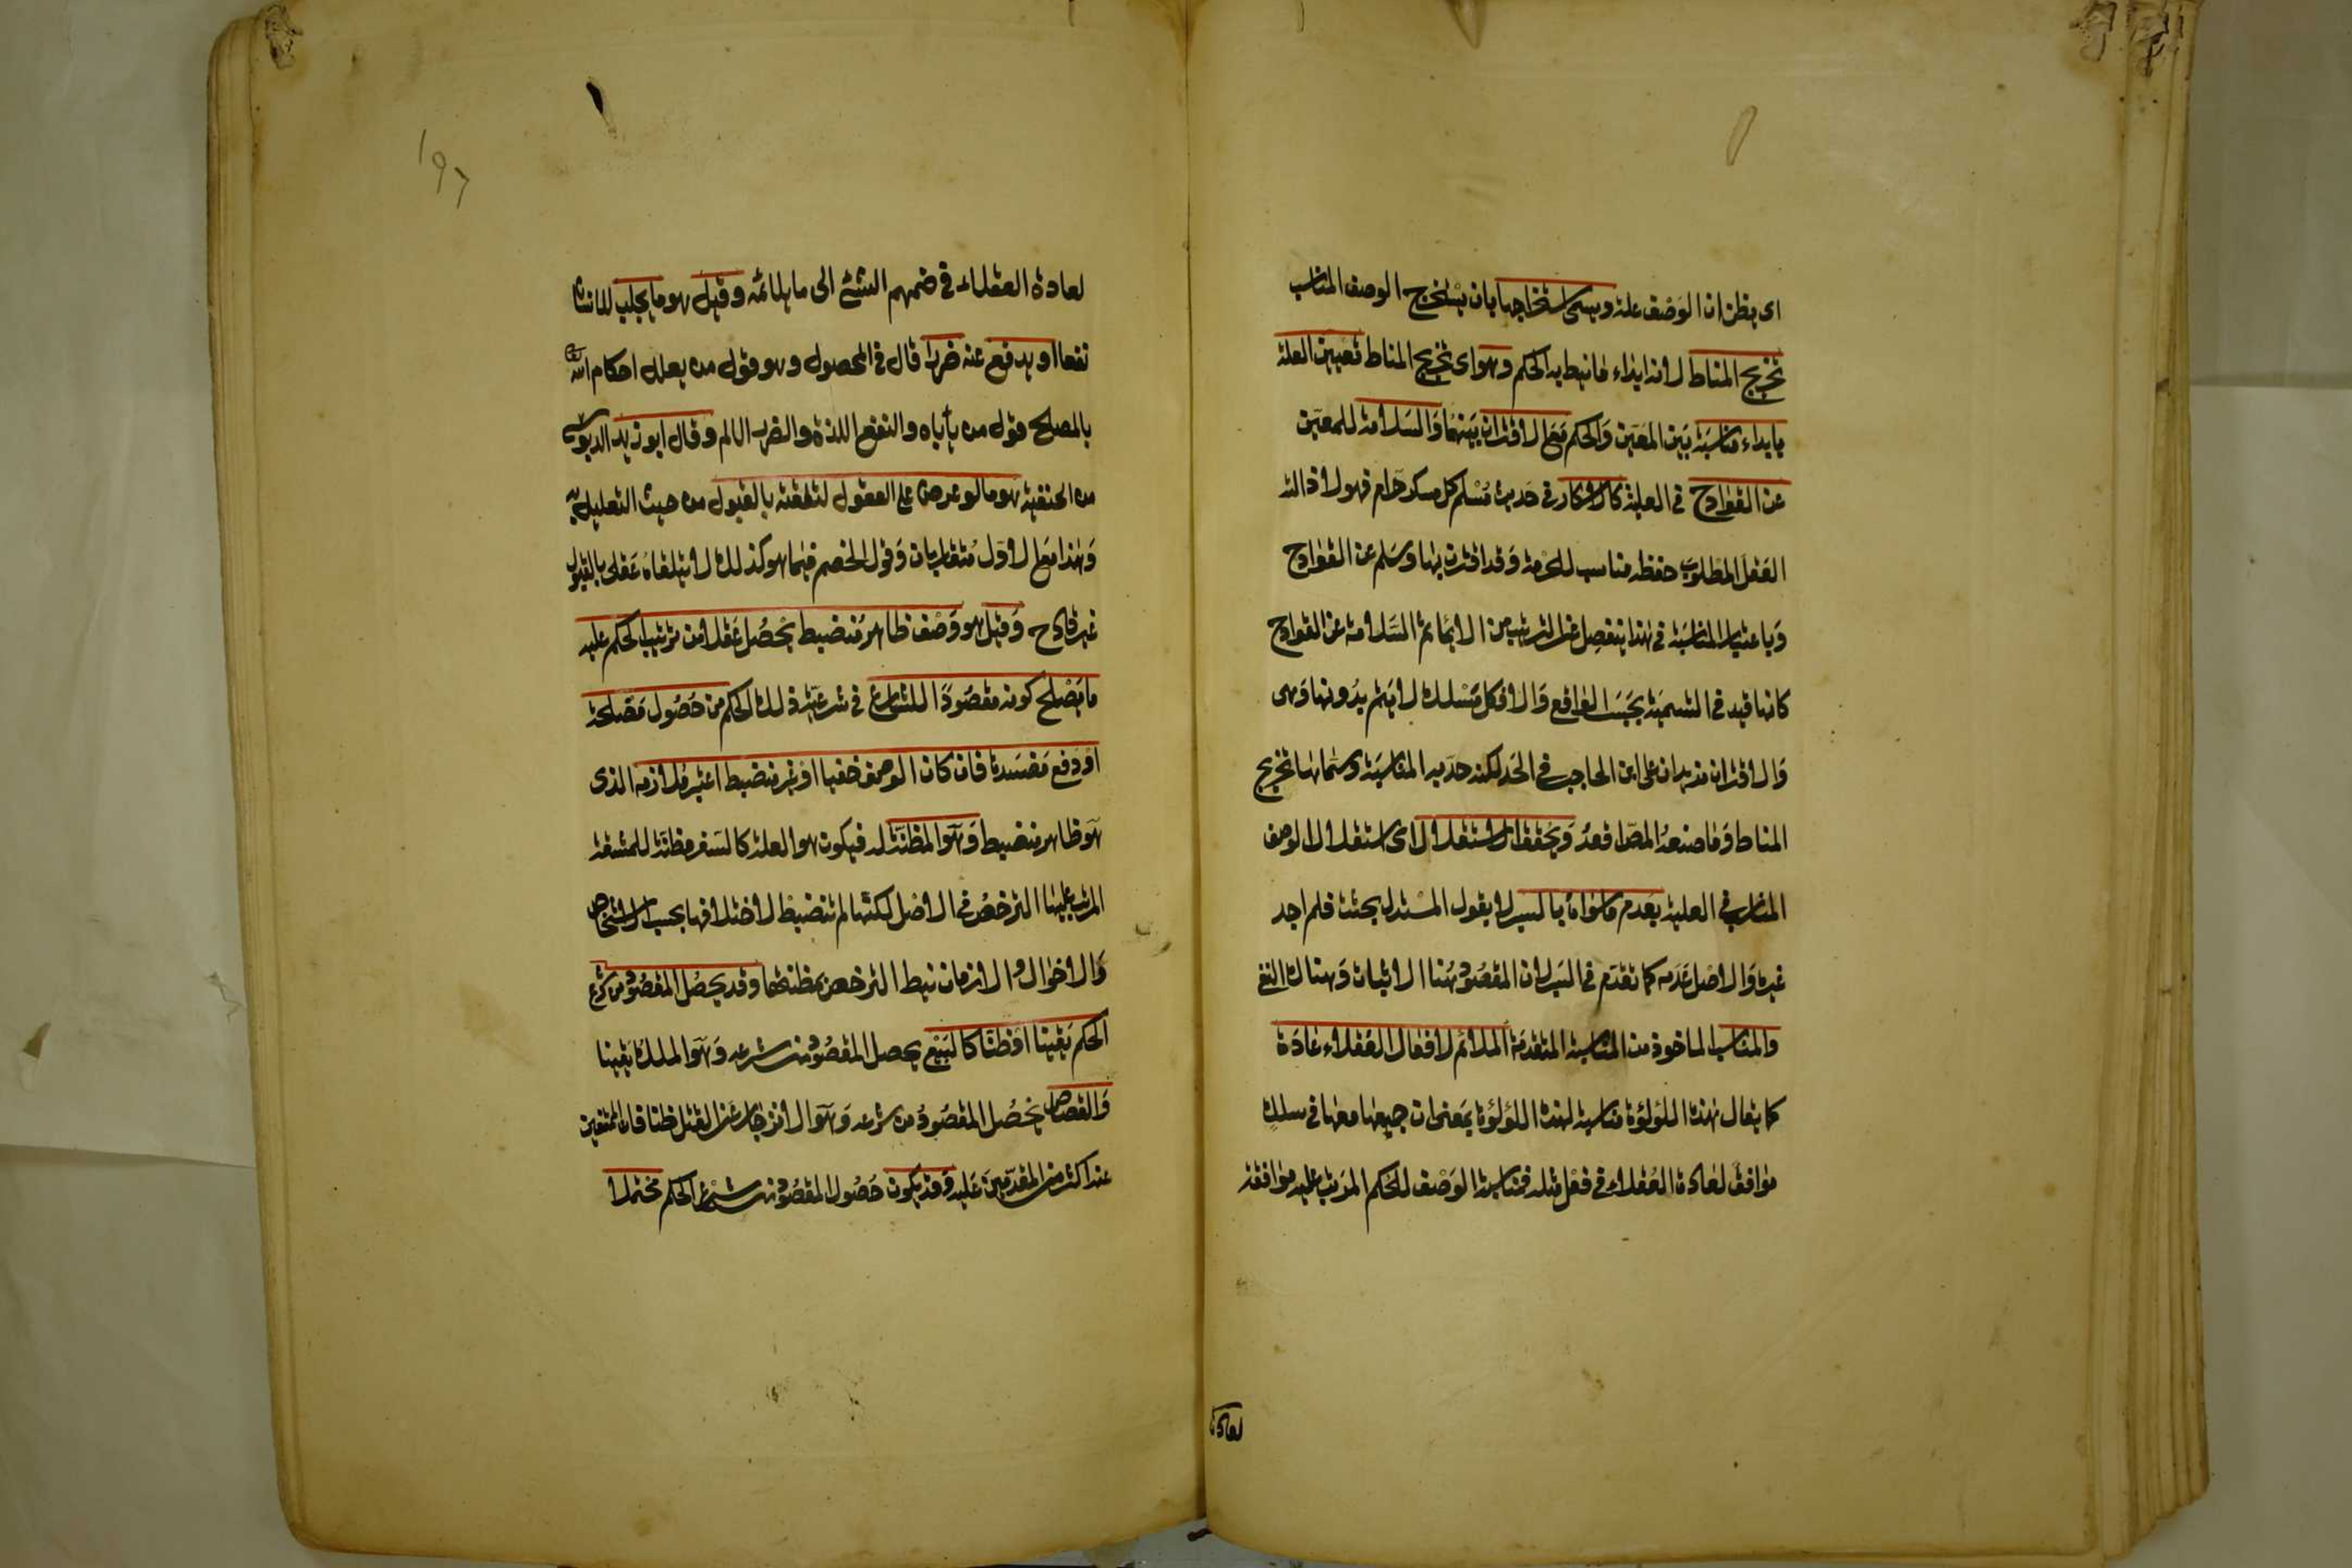 اى يظن ان الوصف علة ويسمى استخراجها بان يستخرج الوصف المناسب
تخريج المناط لانه ابداء مانيط به الحكم وهو اى تخريج المناط تعيين العلة
بابداء مناسبة بين المعين والحكم مع الاقتران بينهما والسلامة للمعين
عن القوادح في العلية كالاسكار في حديث مسلم كل مسكر حرام فهو لازالته
العقل المطلوب حفظه مناسب للحرمة وقد اقترن بها وسلم عن القوادح
وباعتبار المناسبة في هذا ينفصل عن الترتيب من الايماء ثم السلامة عن القوادح
كانها قيد في التسمية بحسب الواقع والا فكل مسلك لا يتم بدونها وهى
والاقتران مزيدان على ابن الحاجب في الحد لكنه حد به المناسبة وسماها تخريج
المناط وما صنعه المص اقعد ويحقق الاستقلال اى استقلال الوصف
المناسب في العلية بعدم ماسواه بالسبر لا بقول المستدل بحثت فلم اجد
غيره والاصل عدمه كما تقدم في السبر لان المقصود هنا الاثبات وهناك النفى
والمناسب الماخوذ من المناسبة المتقدمة الملائم لافعال العقلاء عادة
كما يقال هذه اللؤلؤة مناسبة لهذه اللؤلؤة بمعنى ان جمعها معها في سلك
موافق لعادة العقلاء في فعل مثله فمناسبة الوصف للحكم المرتب عليه موافقة
لعادة
١٩٦
لعادة العقلاء في ضمهم الشئ الى ما يلائمه وقيل هو ما يجلب للانسان
نفعا او يدفع عنه ضررا قال في المحصول وهو قول من يعلل احكام الله
بالمصالح وقول من يأباه والنفع اللذة والضرر الالم وقال ابو زيد الدبوسى
من الحنفية هو ما لو عرض على العقول لتلقته بالقبول من حيث التعليل به
وهذا مع الاول متقاربان وقول الخصم فيما هو كذلك لا يتلقاه عقلى بالقبول
غير قادح وقيل هو وصف ظاهر منضبط يحصل عقلا من ترتيب الحكم عليه
ما يصلح كونه مقصودا للشارع في شرعية ذلك الحكم من حصول مصلحة
او دفع مفسدة فان كان الوصف خفيا او غير منضبط اعتبر ملازمه الذى
هو ظاهر منضبط وهو المظنة له فيكون هو العلة كالسفر مظنة للمشقة
المرتب عليها الترخص في الاصل لكنها لم تنضبط لاختلافها بحسب الاشخاص
والاحوال والازمان نيط الترخص بمظنتها وقد يحصل المقصود من شرع
الحكم يقينا او ظنا كالبيع يحصل المقصود من شرعه وهو الملك يقينا
والقصاص يحصل المقصود من شرعه وهو الانزجار عن القتل ظنا فان الممتنعين
عنه اكثر من المقدمين عليه وقد يكون حصول المقصود من شرع الحكم محتملا